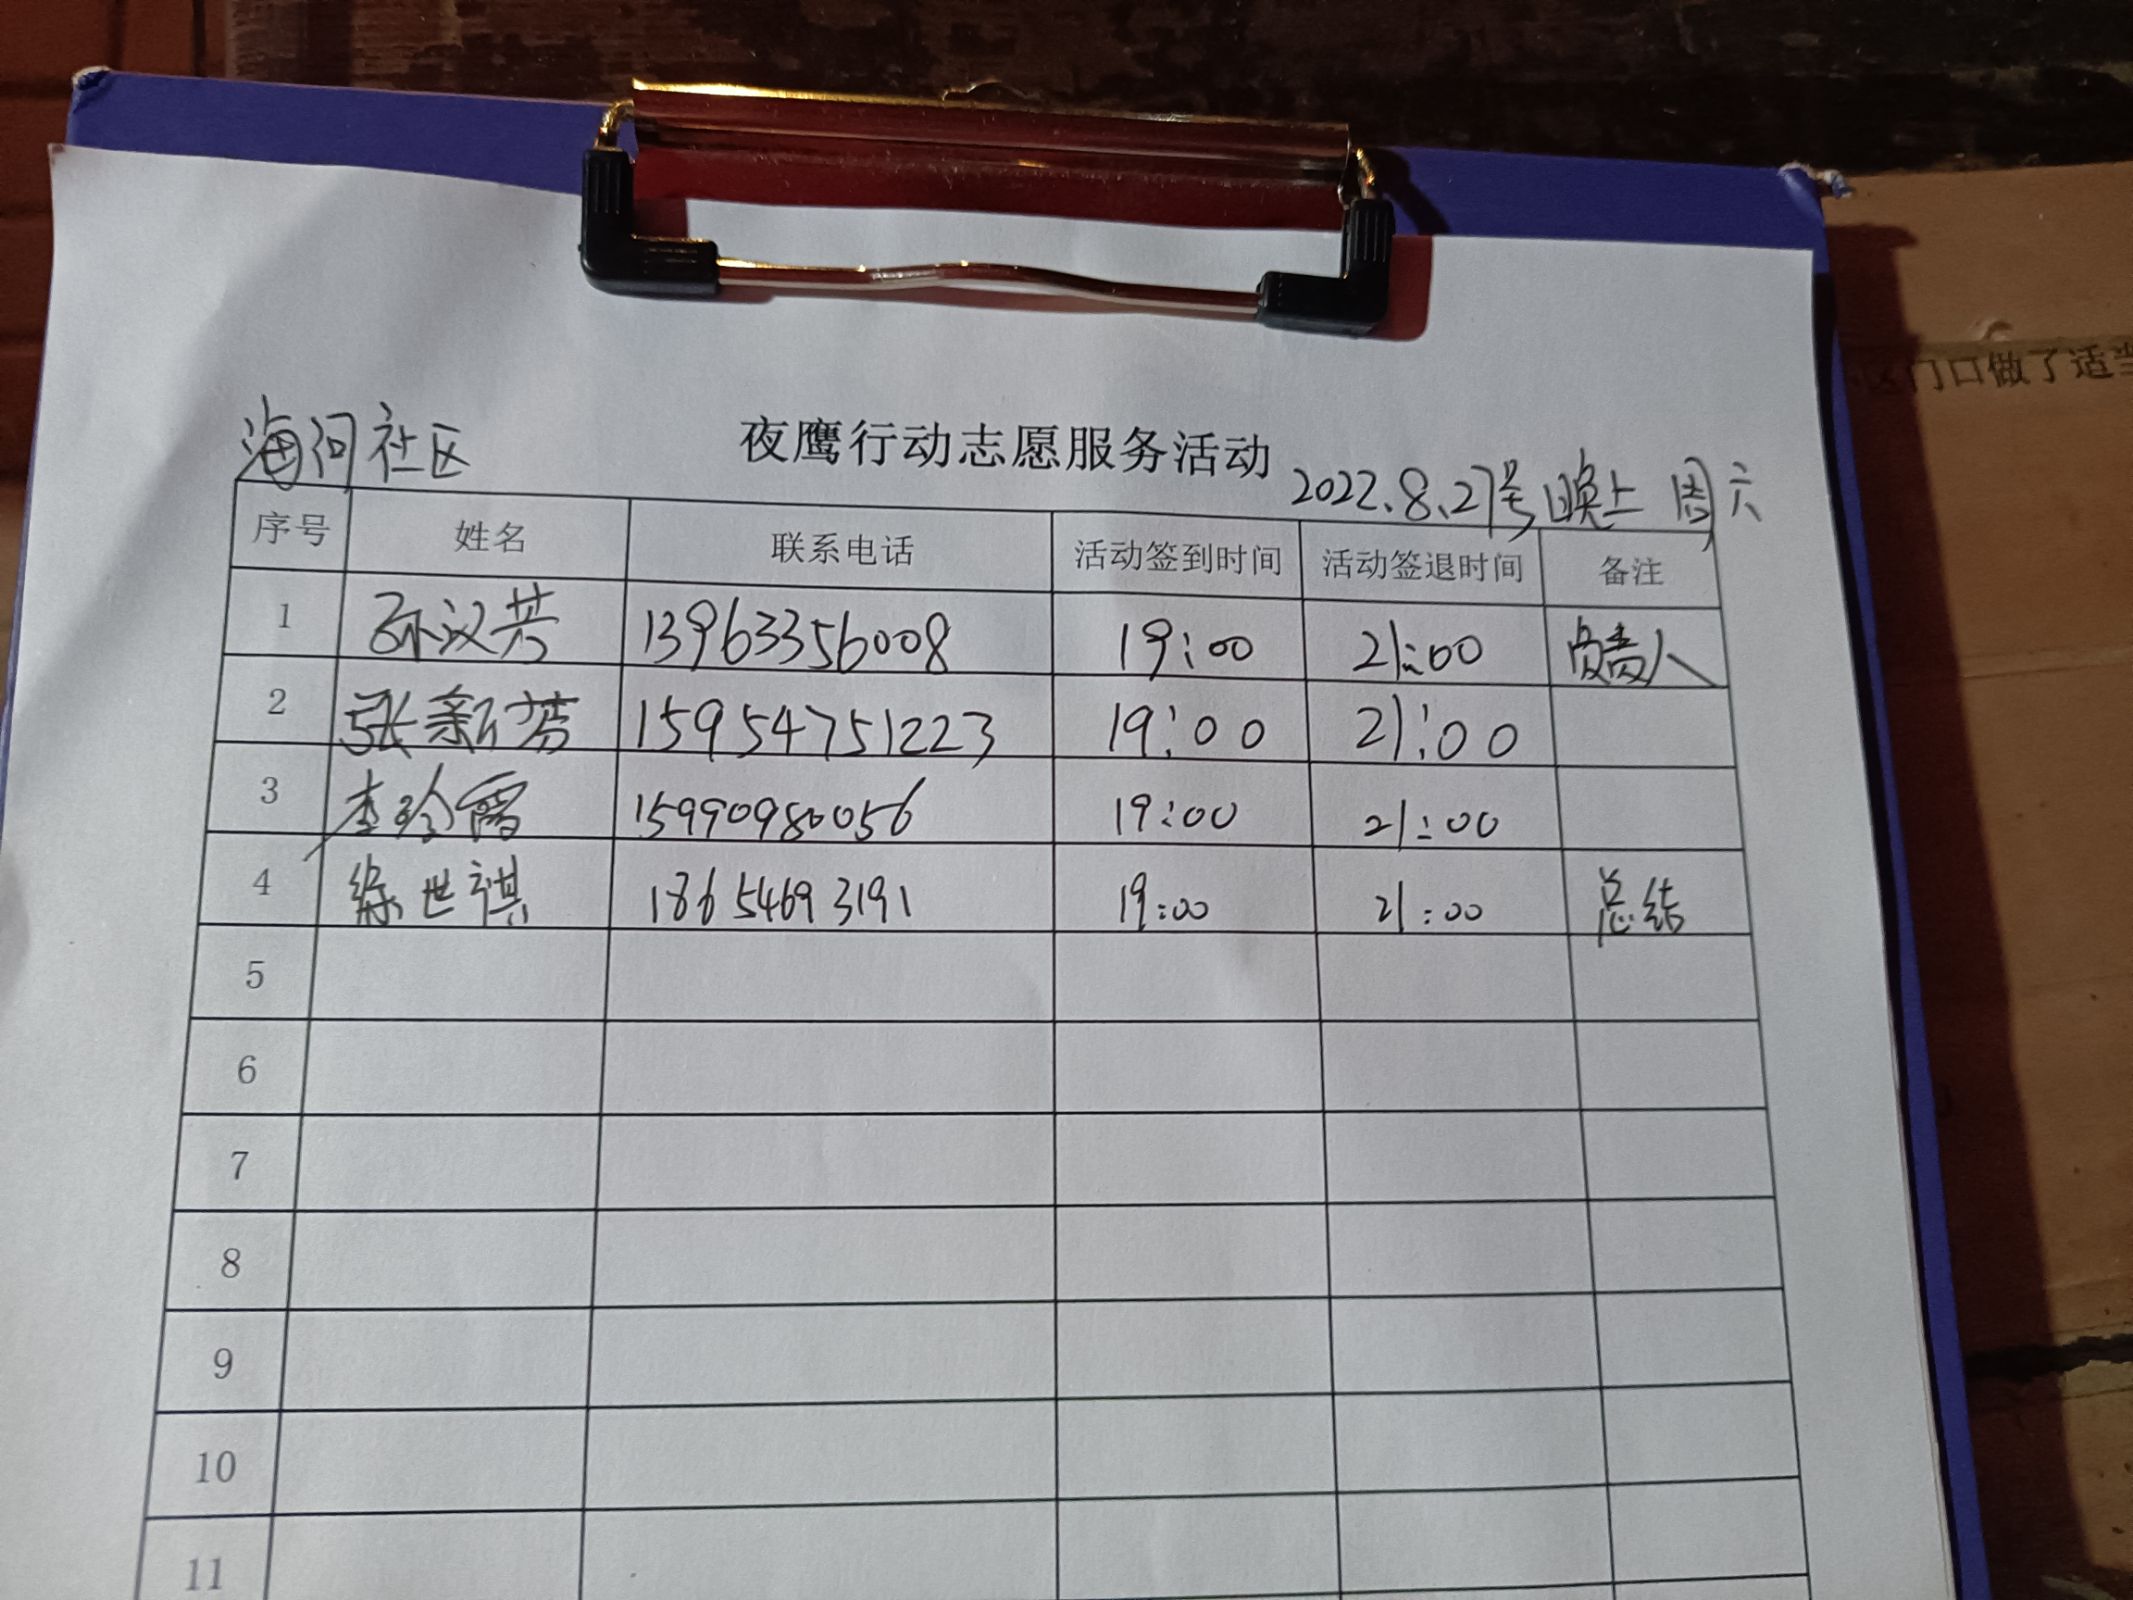 门口做了适当
海河社区 夜鹰行动志愿服务活动
2022.8.27号晚上 周六
序号 姓名 联系电话 活动签到时间 活动签退时间 备注
1 孙汉芳 13963356008 19:00 21:00 负责人
2 张新芳 15954751223 19:00 21:00
3 李珍 15990980056 19:00 21:00
4 徐世祺 18654693191 19:00 21:00 总结
5
6
7
8
9
10
11